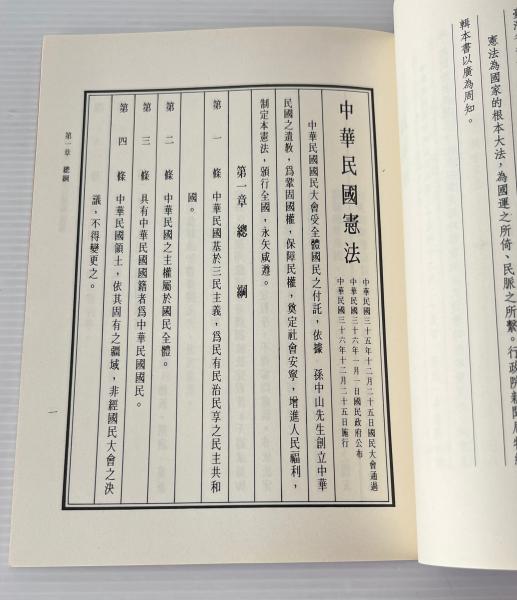 憲法為國家的根本大法，為國運之所倚、民脈之所繫。行政院新聞局特編
輯本書以廣為周知。
中華民國憲法
中華民國三十五年十二月二十五日國民大會通過
中華民國三十六年一月一日國民政府公布
中華民國三十六年十二月二十五日施行
中華民國國民大會受全體國民之付託，依據　孫中山先生創立中華
民國之遺教，爲鞏固國權，保障民權，奠定社會安寧，增進人民福利，
制定本憲法，頒行全國，永矢咸遵。
第一章　總　綱
第　一　條　中華民國基於三民主義，爲民有民治民享之民主共和
國。
第　二　條　中華民國之主權屬於國民全體。
第　三　條　具有中華民國國籍者爲中華民國國民。
第　四　條　中華民國領土，依其固有之疆域，非經國民大會之決
議，不得變更之。
第一章　總綱
一